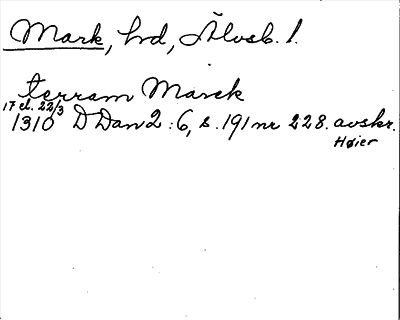 Mark, hd, Älvsb. l.
terram Marck
17 el. 22/3
1310 DDan 2:6, s. 191 nr 228. avskr.
Høier